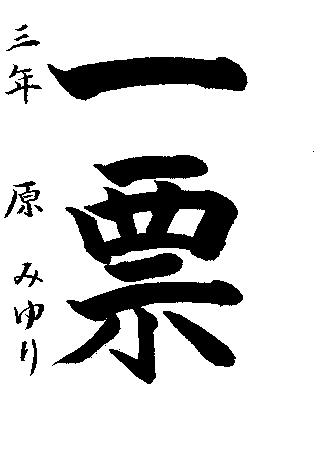 一票
三年 原 みゆり